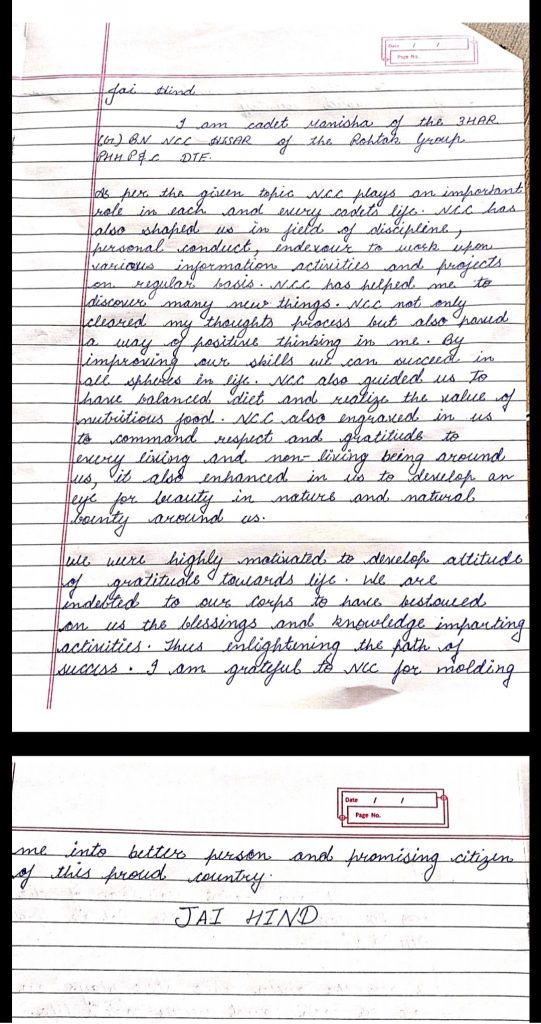 Date / /
Page No.
Jai Hind
I am cadet Manisha of the 3HAR
(G) BN NCC HISSAR of the Rohtak Group
PHHP&C DTE.
As per the given topic NCC plays an important
role in each and every cadets life. NCC has
also shaped us in field of discipline,
personal conduct, endevour to work upon
various information activities and projects
on regular basis. NCC has helped me to
discover many new things. NCC not only
cleared my thoughts process but also paved
a way of positive thinking in me. By
improving our skills we can succeed in
all spheres in life. NCC also guided us to
have balanced diet and realize the value of
nutritious food. NCC also engraved in us
to command respect and gratitude to
every living and non-living being around
us, it also enhanced in us to develop an
eye for beauty in nature and natural
bounty around us.
We were highly motivated to develop attitude
of gratitude towards life. We are
indebted to our corps to have bestowed
on us the blessings and knowledge imparting
activities. Thus enlightening the path of
success. I am grateful to NCC for molding
Date / /
Page No.
me into better person and promising citizen
of this proud country.
JAI HIND